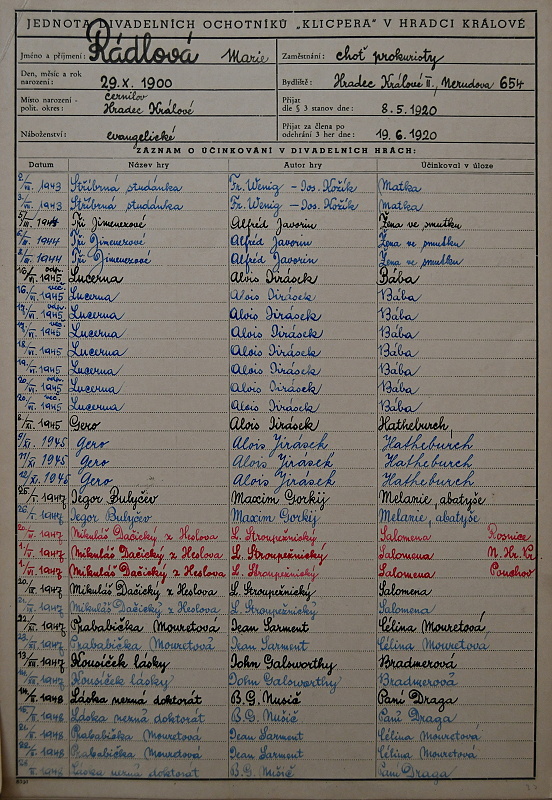 JEDNOTA DIVADELNÍCH OCHOTNÍKŮ „KLICPERA" V HRADCI KRÁLOVÉ
Jméno a příjmení: Rádlová Marie
Zaměstnání: choť prokuristy
Den, měsíc a rok narození: 29. X. 1900
Bydliště: Hradec Králové II, Nerudova 654
Místo narození - polit. okres: Černilov Hradec Králové
Přijat dle § 3 stanov dne: 8. 5. 1920
Náboženství: evangelické
Přijat za člena po odehrání 3 her dne: 19. 6. 1920
ZÁZNAM O ÚČINKOVÁNÍ V DIVADELNÍCH HRÁCH:
Datum Název hry Autor hry Účinkoval v úloze
1943 Stříbrná studánka Fr. Wenig - Jos. Kožík Matka
1943 Stříbrná studánka Fr. Wenig - Jos. Kožík Matka
5/III. 1944 Tři Jimenezové Alfréd Javorin Žena ve smutku
1944 Tři Jimenezové Alfréd Javorin Žena ve smutku
1944 Tři Jimenezové Alfréd Javorin Žena ve smutku
16/VI. odp. 1945 Lucerna Alois Jirásek Bába
16/VI. več. 1945 Lucerna Alois Jirásek Bába
17/VI. odp. 1945 Lucerna Alois Jirásek Bába
17/VI. več. 1945 Lucerna Alois Jirásek Bába
18/VI. 1945 Lucerna Alois Jirásek Bába
19/VI. 1945 Lucerna Alois Jirásek Bába
20/VI. odp. 1945 Lucerna Alois Jirásek Bába
20/VI. več. 1945 Lucerna Alois Jirásek Bába
8/XI. 1945 Gero Alois Jirásek Hatheburch
9/XI. 1945 Gero Alois Jirásek Hatheburch
11/XI. 1945 Gero Alois Jirásek Hatheburch
12/XI. 1945 Gero Alois Jirásek Hatheburch
25/I. 1947 Jegor Bulyčev Maxim Gorkij Melanie, abatyše
26/I. 1947 Jegor Bulyčev Maxim Gorkij Melanie, abatyše
1947 Mikuláš Dačický z Heslova L. Stroupežnický Salomena Rosnice
1947 Mikuláš Dačický z Heslova L. Stroupežnický Salomena N. Hr. Kr.
1947 Mikuláš Dačický z Heslova L. Stroupežnický Salomena Pouchov
20. 1947 Mikuláš Dačický z Heslova L. Stroupežnický Salomena
21. 1947 Mikuláš Dačický z Heslova L. Stroupežnický Salomena
22. 1947 Prababička Mouretová Jean Sarment Célina Mouretová
23. 1947 Prababička Mouretová Jean Sarment Célina Mouretova
13/XII. 1947 Kousíček lásky John Galsworthy Bradmerová
14/XII. 1947 Kousíček lásky John Galsworthy Bradmerová
14. 1948 Láska nezná doktorát B. G. Nušič Paní Draga
15. 1948 Láska nezná doktorát B. G. Nušič Paní Draga
21. 1948 Prababička Mouretová Jean Sarment Célina Mouretová
22. 1948 Prababička Mouretová Jean Sarment Célina Mouretová
1948 Láska nezná doktorát B. G. Nušič Paní Draga